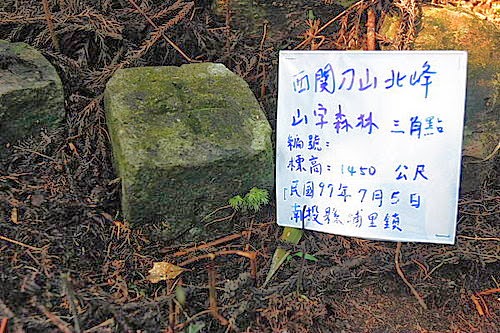 西関刀山北峰
山字森林 三角點
編號：
標高：1450 公尺
民國97年7月5日
南投縣埔里鎮